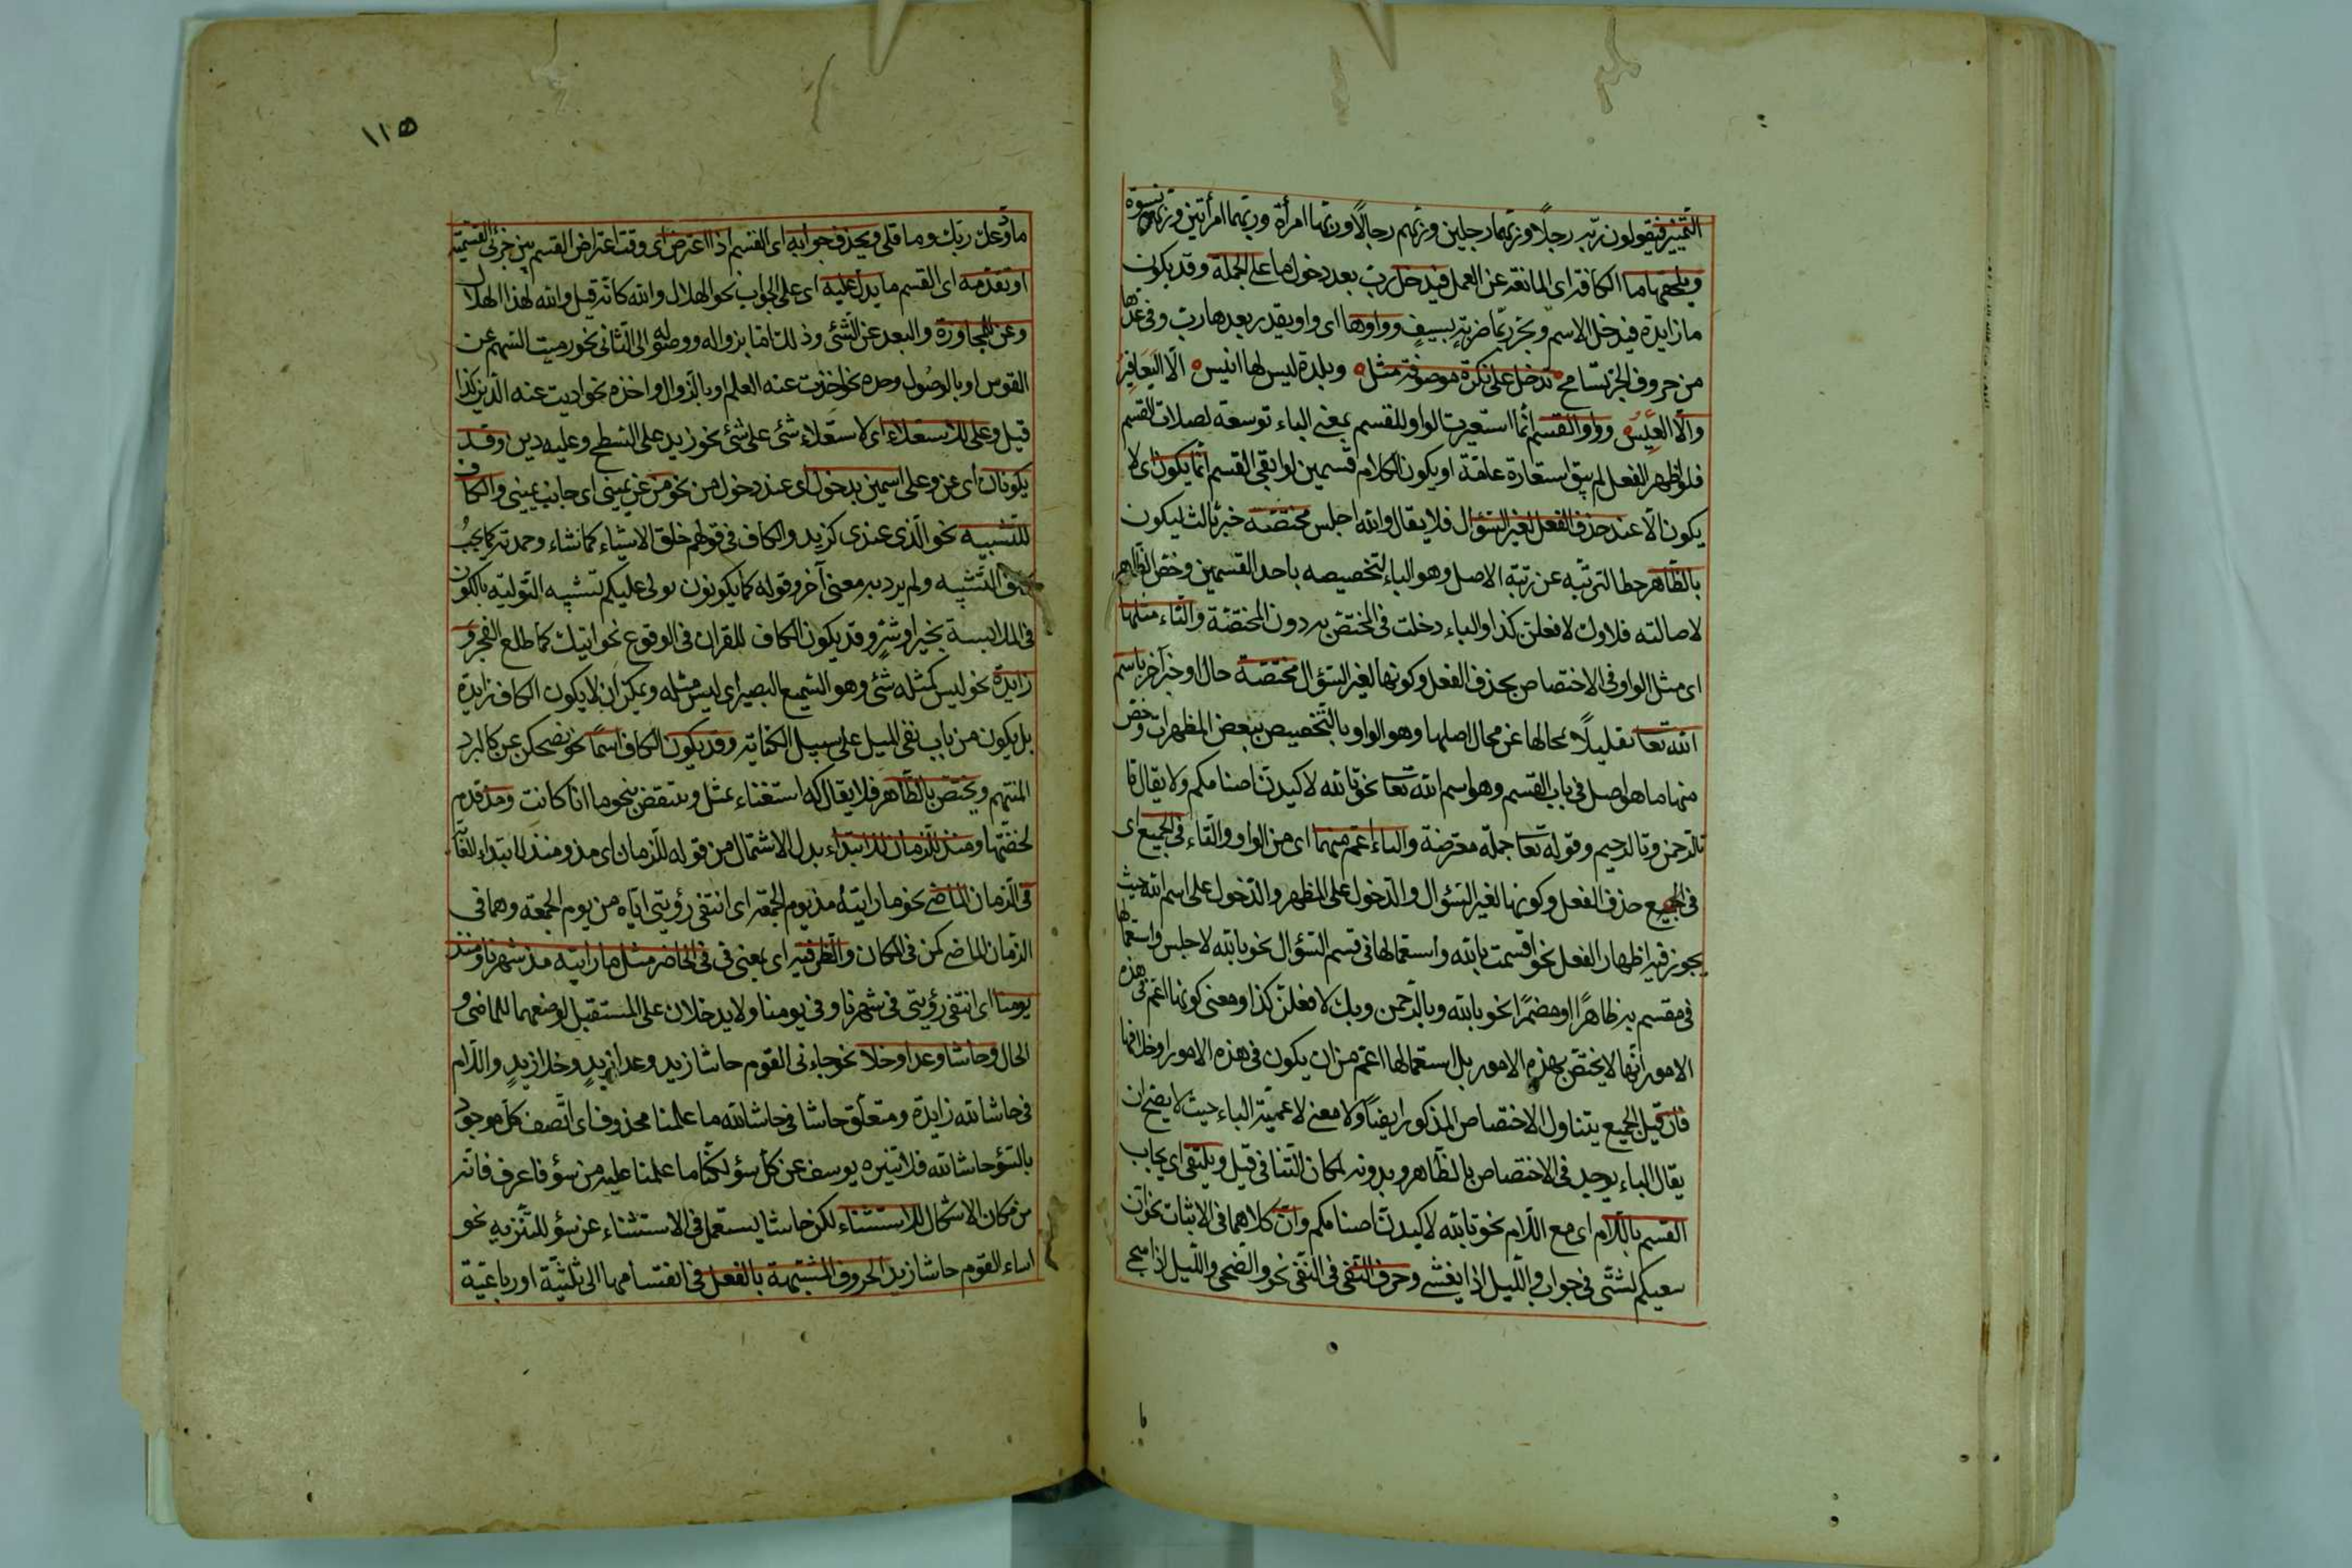 التمييز فيقولون ربّه رجلاً وربّهما رجلين وربّهم رجالاً وربّها امرأة وربّهما امرأتين وربّهن نسوة
ويلحقها ما الكافة اى المانعة عن العمل فيدخل ربّ بعد دخول ما على الجملة وقد يكون
ما زايدة فيدخل الاسم ويجرّ ربّما ضربةٍ بسيفٍ وواوها اى واو يقدر بعدها ربّ وفى عدّها
من حروف الجرّ تسامح تدخل على نكرة موصوفة مثل وبلدة ليس لها انيس الّا اليَعَافِيرُ
والّا العِيْسُ وواو القسم انّما استعيرت الواو للقسم بمعنى الباء توسعة لصلات القسم
فلو اظهر الفعل لم يبق استعارة عامّة او يكون الكلام قسمين لو ابقى القسم انّما يكون اى لا
يكون الّا عند حذف الفعل لغير السّؤال فلا يقال والله اجلس مختصّة خبر ثالث ليكون
بالظّاهر حطا لترتّبه عن رتبة الاصل وهو الباء لتخصيصه باحد القسمين وخصّ الظّاهر
لاصالته فلا وك لافعلنّ كذا والباء دخلت فى المختصّ به دون المختصّة والتّاء مثلها
اى مثل الواو فى الاختصاص بحذف الفعل وكونها لغير السّؤال مختصّة حال او خبر آخر باسم
الله تعا تقليلاً لمحالها عن محال اصلها وهو الواو بالتّخصيص ببعض المظهرات وخصّ
منها ما هو اصل فى باب القسم وهو اسم الله تعا نحو تالله لاكيدنّ اصنامكم ولا يقال تا
تالرحمن وتالرحيم وقوله تعا جملة معترضة والباء اعمّ منهما اى من الواو والتّاء فى الجميع اى
فى الجميع حذف الفعل وكونها لغير السّؤال والدّخول على المظهر والدّخول على اسم الله حيث
يجوز فيه اظهار الفعل نحو اقسمت بالله واستعمالها فى قسم السّؤال نحو بالله لاجلس واستعمالها
فى مقسم به ظاهرًا او مضمرًا نحو بالله وبالرّحمن وبك لافعلنّ كذا ومعنى كونها اعمّ فى هذه
الامور انّها لا يختصّ بهذه الامور بل استعمالها اعمّ من ان يكون فى هذه الامور او خلافها
فان قيل الجميع يتناول الاختصاص المذكور ايضًا ولا معنى لاعميّة الباء حيث لا يصحّ ان
يقال الباء يوجد فى الاختصاص بالظّاهر وبدونه لمكان التّنافى قيل ويلتقى اى يجاب
القسم باللّام اى مع اللّام نحو تالله لاكيدنّ اصنامكم وانّ كلاهما فى الاثبات نحو انّ
سعيكم لشتّى فى جواب واللّيل اذا يغشى وحرف النّفى فى النّفى نحو والضّحى واللّيل اذا سجى
١١٥
ما ودّعك ربّك وما قلى ويحذف جوابه اى القسم اذا اعترض اى وقت اعتراض القسم بين جزئى القسميّة
او تقدّمه اى القسم ما يدلّ عليه اى على الجواب نحو الهلال والله كانّه قيل والله لهذا الهلال
وعن للمجاوزة والبعد عن الشّئ وذلك امّا بزواله ووصوله الى الثّانى نحو رميت السّهم عن
القوس او بالوصول وحده نحو اخذت عنه العلم او بالزّوال واخذه نحو اديت عنه الدّين كذا
قيل وعلى للاستعلاء اى لاستعلاء شئ على شئ نحو زيد على السّطح وعليه دين وقد
يكونان اى عن وعلى اسمين بدخول اى عند دخول من نحو من عن يمينى اى جانب يمينى والكاف
للتّشبيه نحو الّذى عندى كزيد والكاف فى قولهم خلق الاشياء كما شاء وحمدته كما يجبُ
التّشبيه ولم يرد به معنى آخر وقوله كما يكونون يولى عليكم تشبيه التّولية بالكون
فى الملابسة بخير او شرّ وقد يكون الكاف للقران فى الوقوع نحو اتيك كما طلع الفجر و
زايدة نحو ليس كمثله شئ وهو السّميع البصير اى ليس مثله ويمكن ان لا يكون الكاف زايدة
بل يكون من باب نفى المثل على سبيل الكناية وقد يكون الكاف اسمًا نحو يضحكن عن كالبرد
المنهم ويختصّ بالظّاهر فلا يقال كه استغناء بمثل وينتقض بنحو ما انا كانت ومذ قدم
لخفّتها ومنذ للزّمان للابتداء بدل الاشتمال من قوله للزّمان اى مذ ومنذ لابتداء الغاية
فى الزّمان الماضى نحو ما رايته مذ يوم الجمعة اى انتفى رؤيتى ايّاه من يوم الجمعة وهما فى
الزمان الماضى كمن فى المكان والظّرفيّة اى بمعنى فى فى الحاضر مثل ما رايته مذ شهرنا ومنذ
يومنا اى انتفى رؤيتى فى شهرنا وفى يومنا ولا يدخلان على المستقبل لوضعهما للماضى و
الحال وحاشا وعدا وخلا نحو جاءنى القوم حاشا زيد وعدا زيدٍ وخلا زيدٍ واللّام
فى حاشا لله زايدة ومتعلّق حاشا فى حاشا لله ما علمنا محذوف اى اتّصف كلّ موجود
بالسّؤ حاشا لله فلا تنزه يوسف عن كلّ سؤ لكنّا ما علمنا عليه من سؤ فاعرف فانّه
من مكان الاشكال للاستثناء لكن حاشا يستعمل فى الاستثناء عن سؤ للتّنزيه نحو
اساء القوم حاشا زيد الحروف المشبّهة بالفعل فى انقسامها الى ثلثيّة او رباعيّة